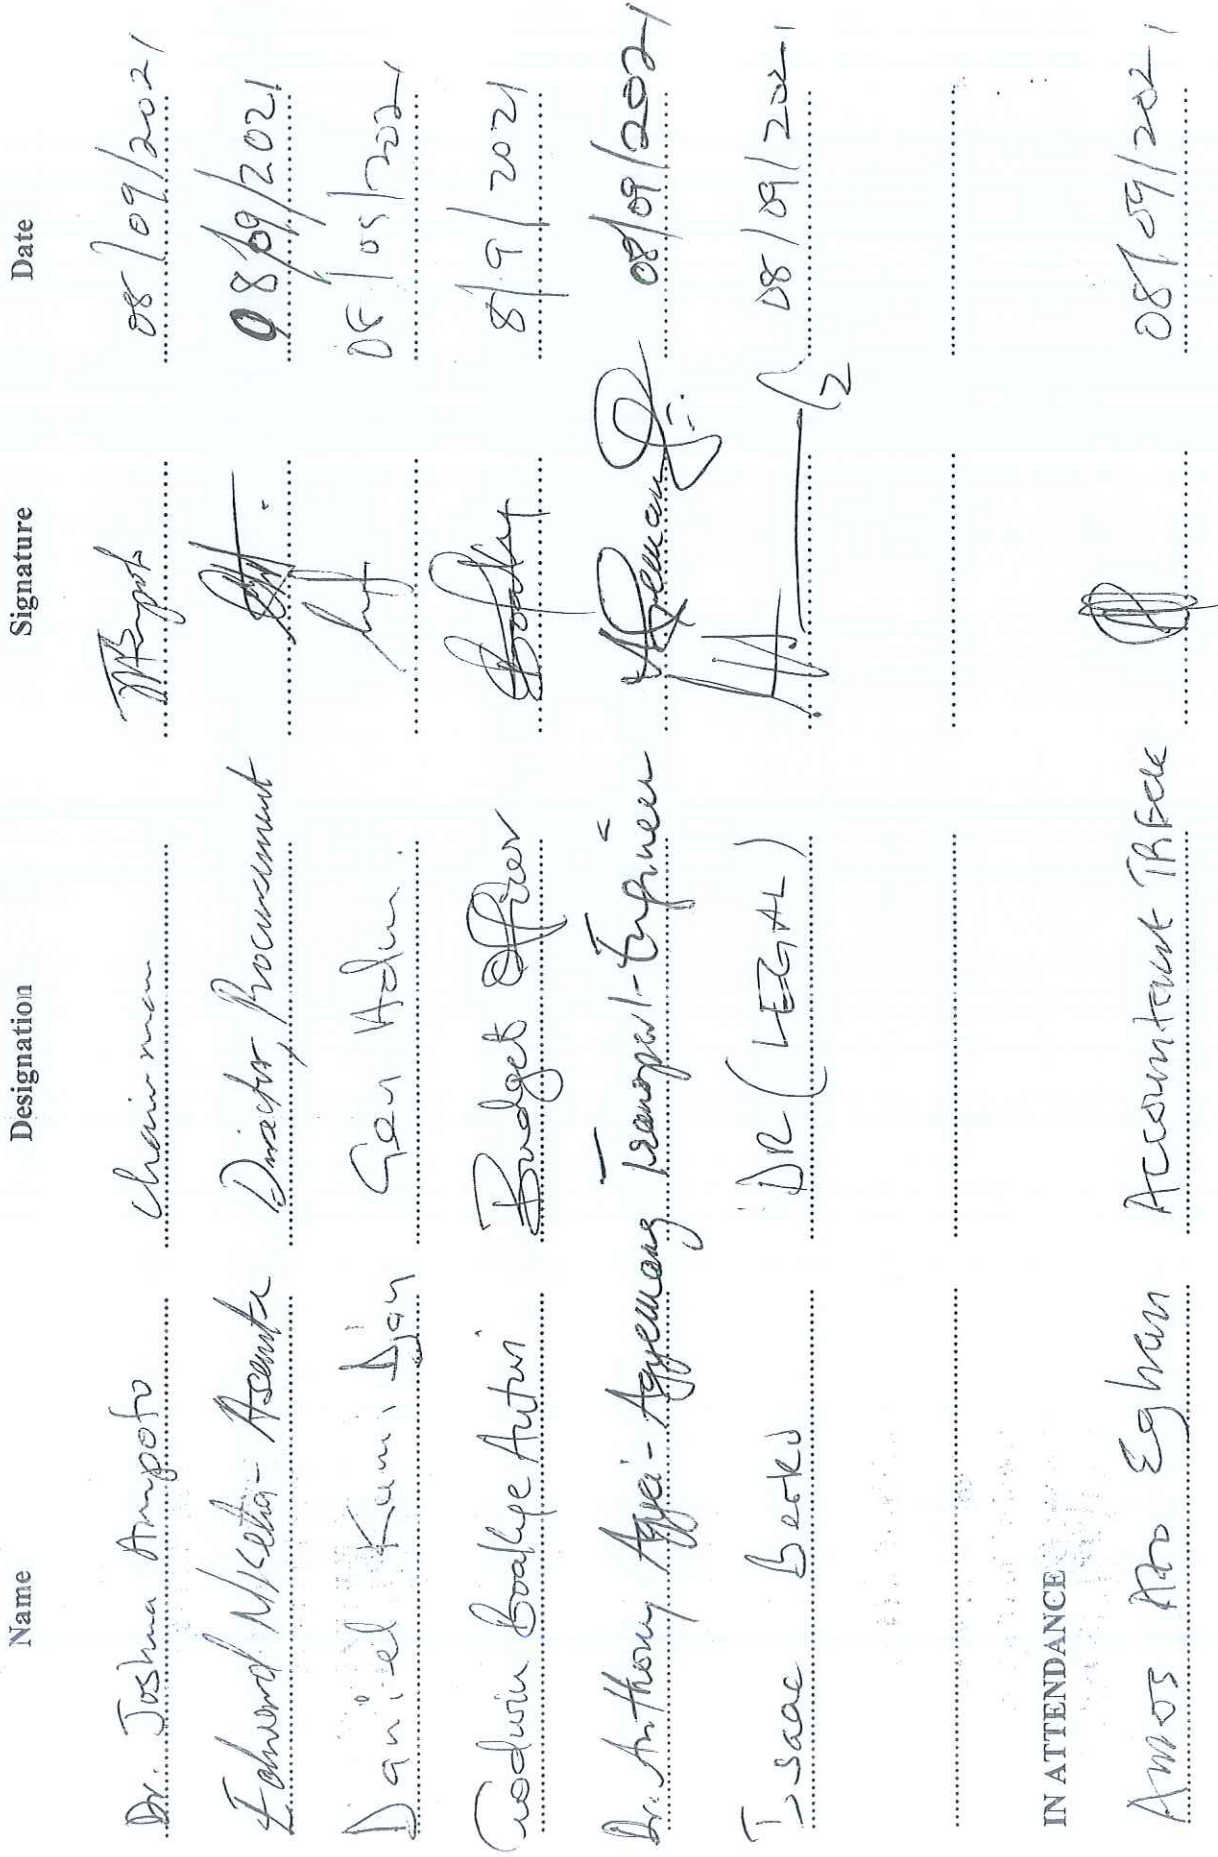 Name Designation Signature Date
Dr. Joshua Ampofo Chairman 08/09/2021
Edward Nketia-Asante Director, Procurement 08/09/2021
Daniel Kumi Djan Gen Adm. 08/09/2021
Godwin Boakye Autwi Budget Officer 8/9/2021
Dr. Anthony Agyei-Agyemang Transport Engineer 08/09/2021
Isaac Berko DR (LEGAL) 08/09/2021
IN ATTENDANCE
Amos Ato Eghan Accountant 08/09/2021